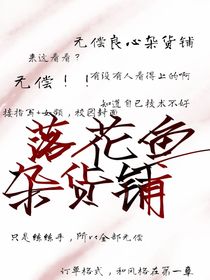 无偿良心杂货铺
来这看看?
无偿!!
有没有人看得上的啊
知道自己技术不好
接指写+如愿,校园封面
落花鱼
杂货铺
只是练练手,所以全部无偿
订单格式,和风格在第一章